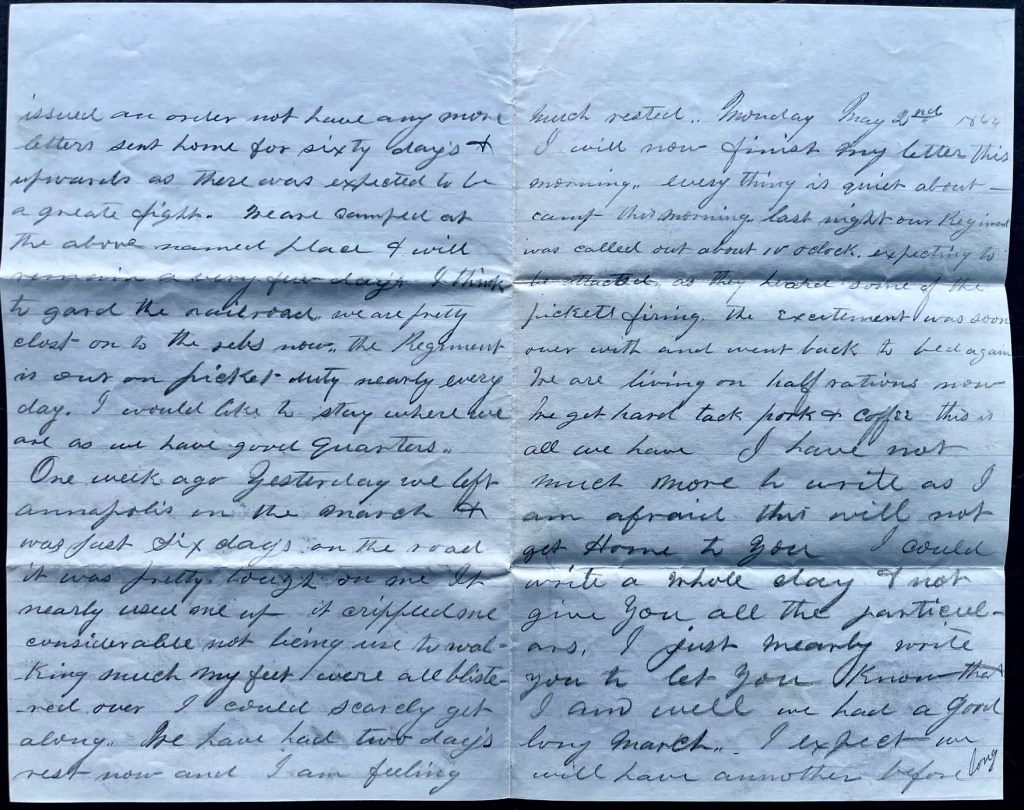 issued an order not have any more
letters sent home for sixty day's &
upwards as there was expected to be
a greate fight. We are camped at
the above named place & will
remain a very few day's I think
to gard the railroad, we are pretty
clost on to the rebs now,, the Regiment
is out on picket duty nearly every
day. I would like to stay where we
are as we have good quarters,,
One week ago Yesterday we left
annapolis on the march &
was just Six day's on the road
it was pretty tough on me It
nearly used me up it crippled me
considerable not being use to wal-
King much My feet were all bliste-
-red over I could scarcly get
along,, We have had two day's
rest now and I am feeling
much rested,, Monday May 2nd 1864
I will now finist My letter this
morning,, every thing is quiet about
camp this morning. last night our Regiment
was called out about 10 oclock. expecting to
be attacted, as they heard some of the
picketts firing, the excitement was soon
over with and went back to bed again
We are living on half rations now
We get hard tack pork & coffee this is
all we have I have not
much more to write as I
am afraid this will not
get Home to You I could
write a whole day & not
give You all the particul-
ars, I just mearly write
you to let You Know that
I am well we had a good
long march,, I expect we
will have annother before long